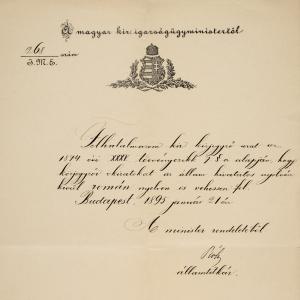 A magyar kir. igazságügyministertől
968 szám
I.M.E.
Felhatalmazom kir. közjegyző urat az
1874 évi XXXV. törvényczikk 7 § a alapján, hogy
közjegyzői okiratokat az állam hivatalos nyelvén
kívül román nyelven is vehessen fel.
Budapest 1895 január 21 én.
A minister rendeletéből
államtitkár.